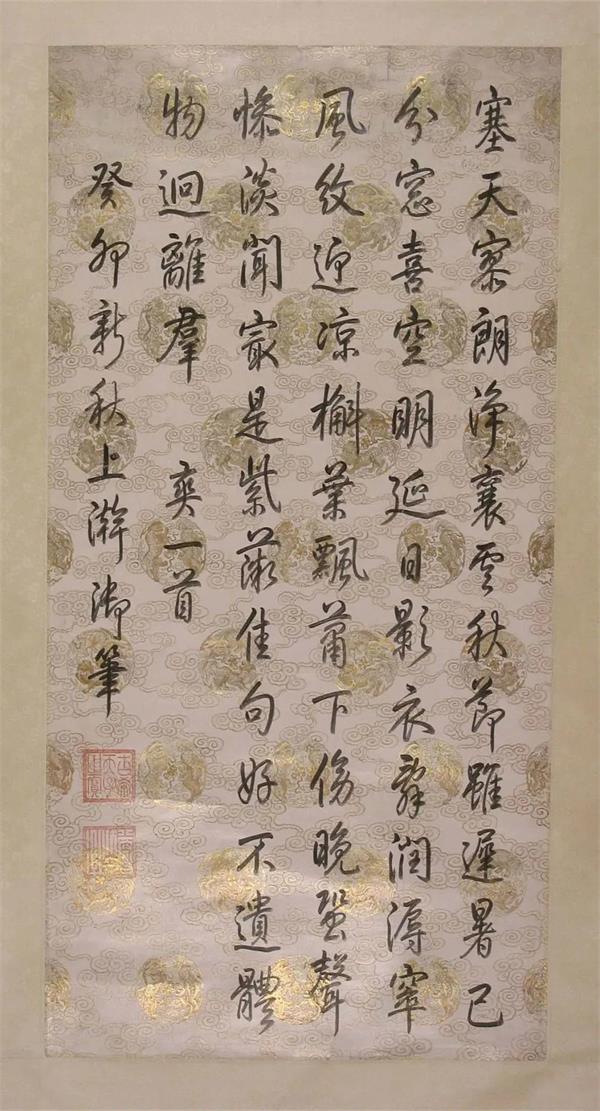 塞天寥朗淨褰雲秋節雖遲暑已
分窓喜空明延日影衣辭潤溽窣
風紋迎凉槲葉飄蕭下傍晚蛩聲
慘淡聞㝡是紫薇佳句好不遺體
物迥離羣 爽一首
癸卯新秋上澣御筆